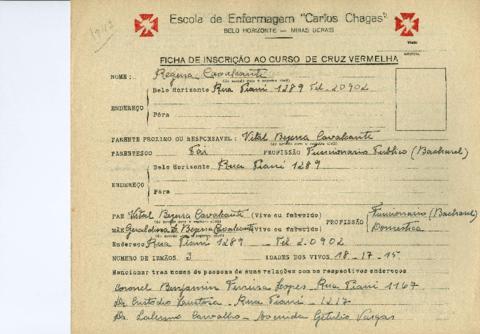 1942
Escola de Enfermagem "Carlos Chagas"
BELO HORIZONTE — MINAS GERAIS
FICHA DE INSCRIÇÃO AO CURSO DE CRUZ VERMELHA
NOME: Regina Cavalcanti
Belo Horizonte Rua Piauí 1289 Tel. 20902
ENDEREÇO
Fóra
PARENTE PROXIMO OU RESPONSAVEL: Vital Bezerra Cavalcanti
PARENTESCO Pai PROFISSÃO Funcionario Publico (Bacharel)
Belo Horizonte Rua Piauí 1289
ENDEREÇO
Fóra
PAE Vital Bezerra Cavalcanti (Vivo ou falecido) PROFISSÃO Funcionario (Bacharel)
MÃE Geraldina Bezerra Cavalcanti (Viva ou falecida) Domestica
Endereço Rua Piauí 1289 Tel 2.0902
NUMERO DE IRMÃOS 3 IDADES DOS VIVOS 18-17-15
Mencionar tres nomes de pessoas de suas relações com os respectivos endereços
Coronel Benjamin Lopes, Rua Piauí 1167
Dr. Custodio - Rua Piauí - 1217
Dr. Carvalho - Avenida Getulio Vargas